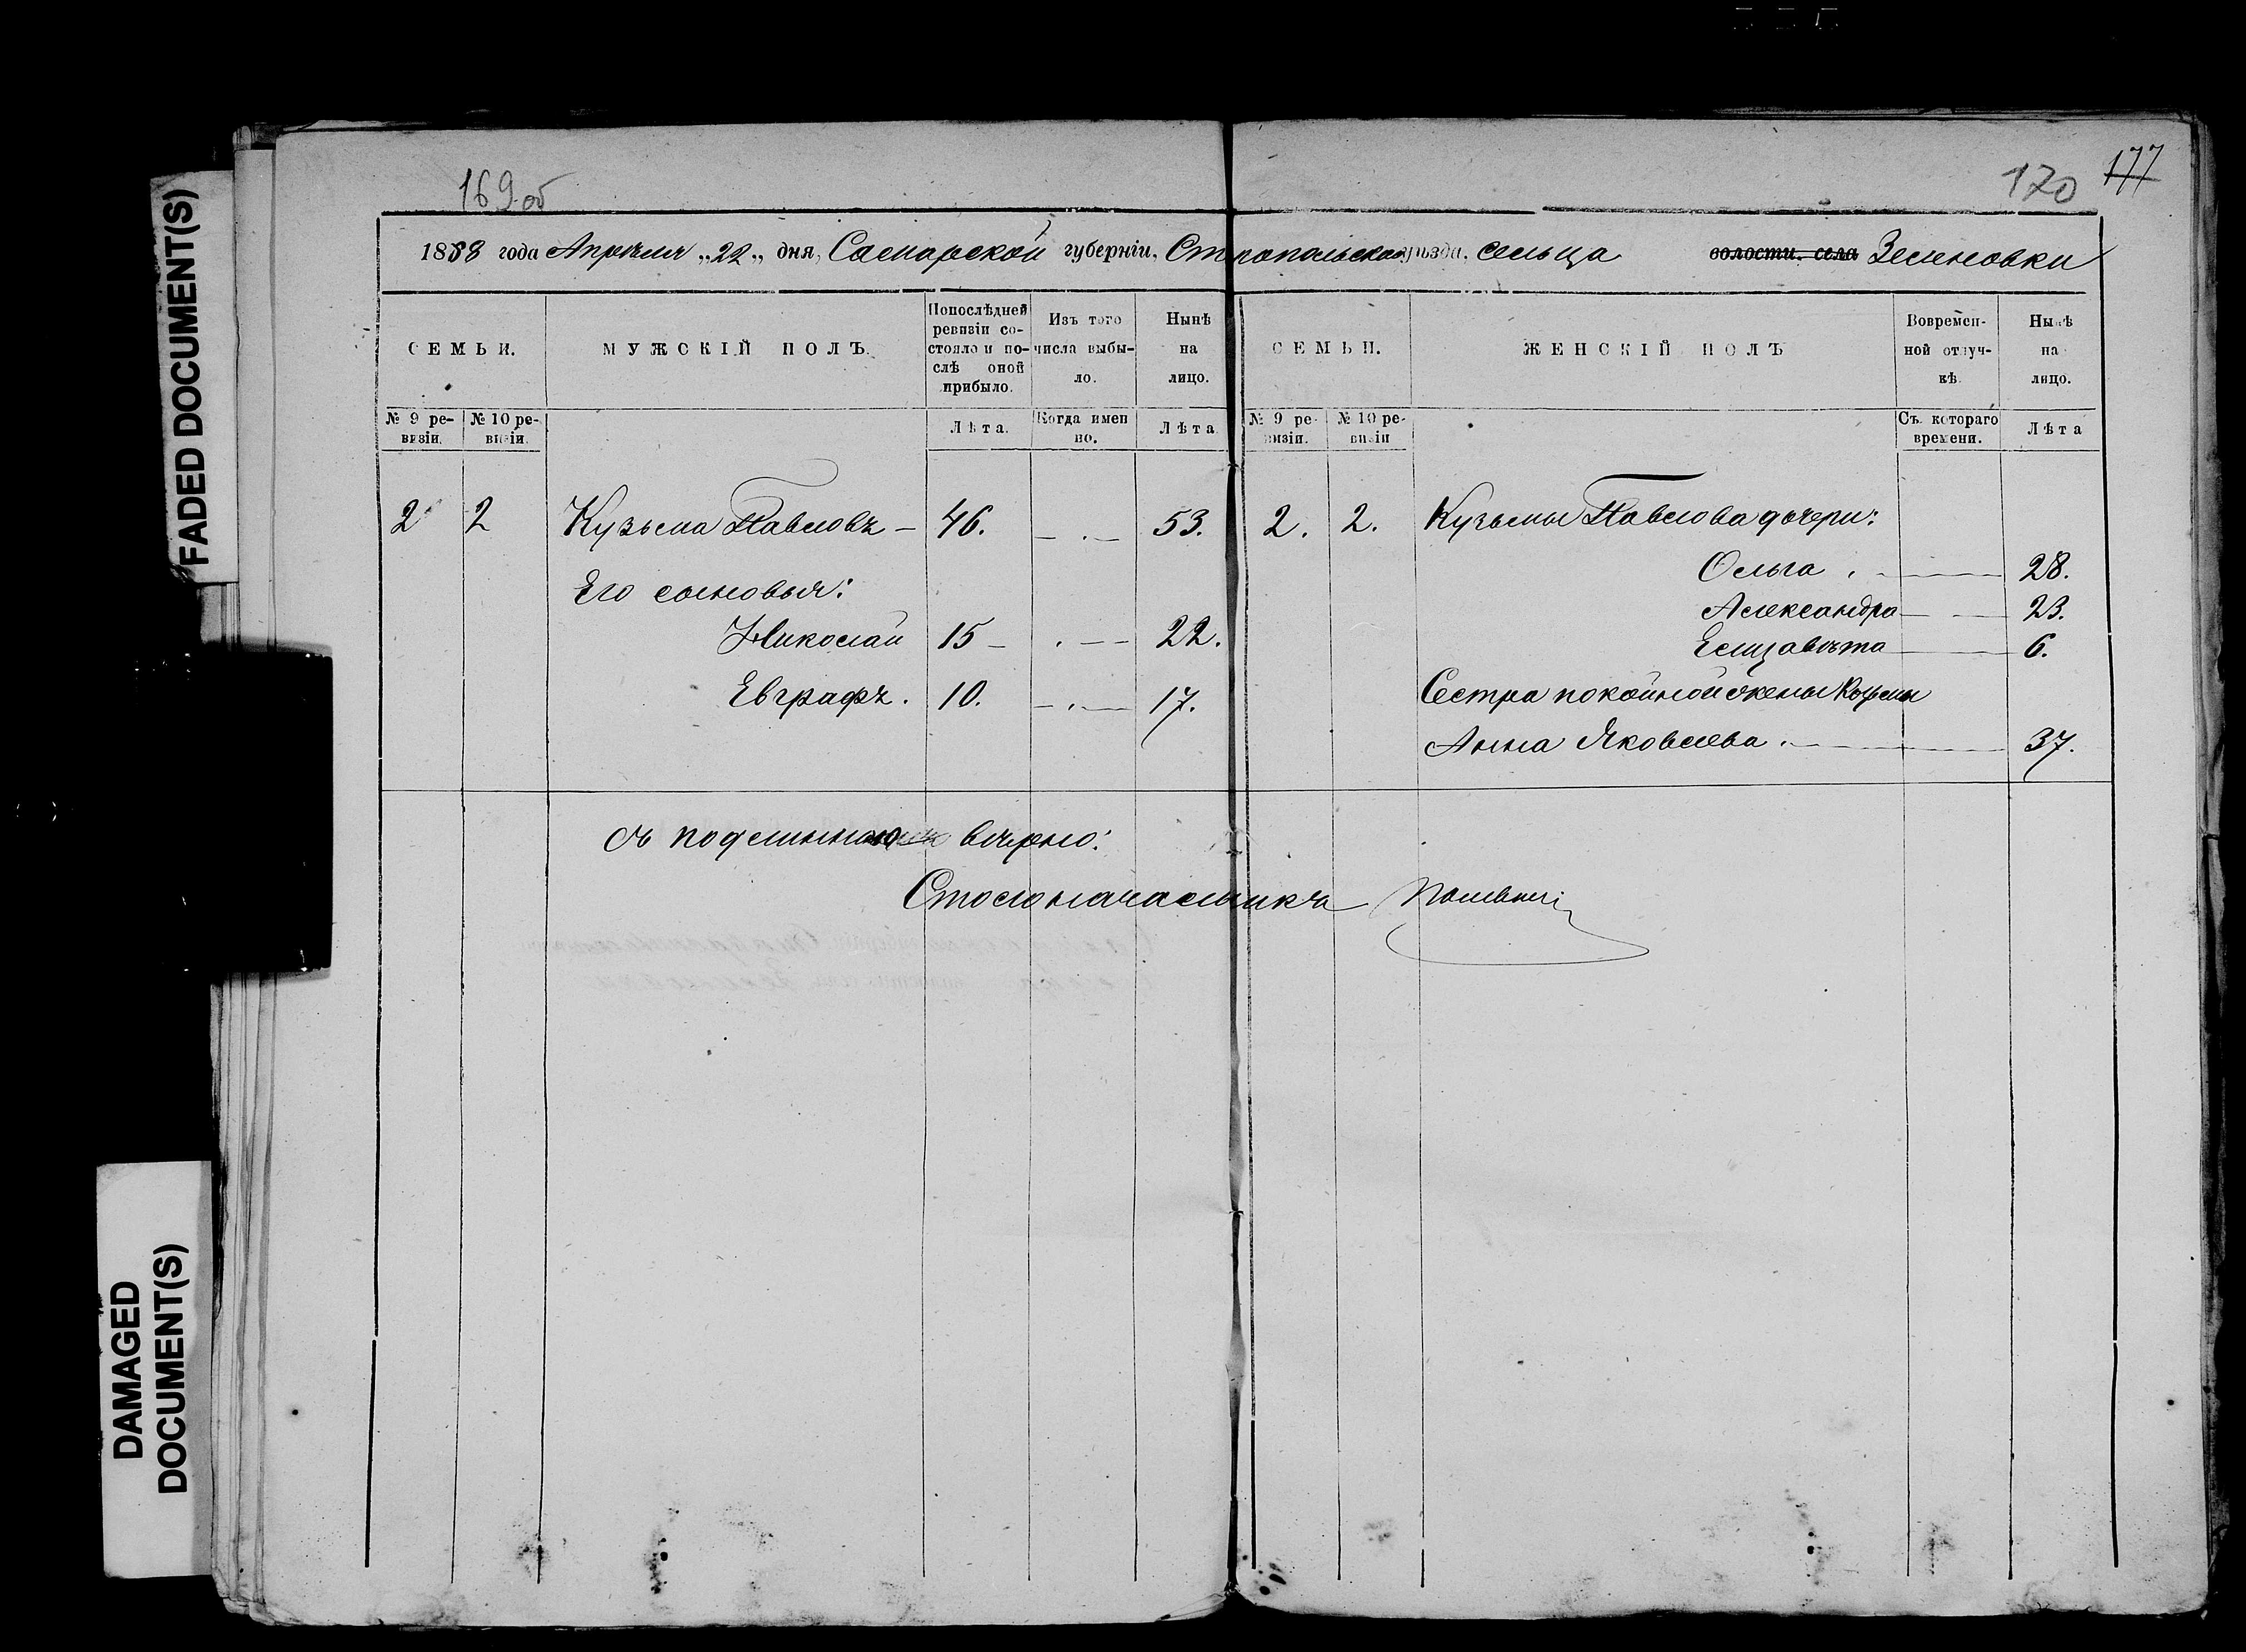 FADED DOCUMENT(S)
DAMAGED DOCUMENT(S)
169 об
170 177
1858 года Апрѣля „22„ дня, Самарской губерніи, Ставропольскаго уѣзда, сельца волости. села Зеленовки
СЕМЬИ.
МУЖСКІЙ ПОЛЪ.
Попослѣдней ревизіи состояло и послѣ оной прибыло.
Изъ того числа выбыло.
Нынѣ на лицо.
СЕМЬИ.
ЖЕНСКІЙ ПОЛЪ
Вовременной отлучкѣ.
Нынѣ на лицо.
№ 9 ревизіи.
№ 10 ревизіи.
Лѣта.
Когда именно.
Лѣта
№ 9 ревизіи.
№ 10 ревизіи
Съ котораго времени.
Лѣта
2 2 Кузьма Павловъ – 46. – . – 53.
Его сыновья:
Николай 15 – . – 22.
Евграфъ. 10. – . – 17.
2. 2. Кузьмы Павлова дочери:
Ольга . 28.
Александра 23.
Елизавѣта 6.
Сестра покойной жены Козьмы
Анна Яковлева . 37.
Съ подлиннымъ вѣрно:
Столоначальникъ